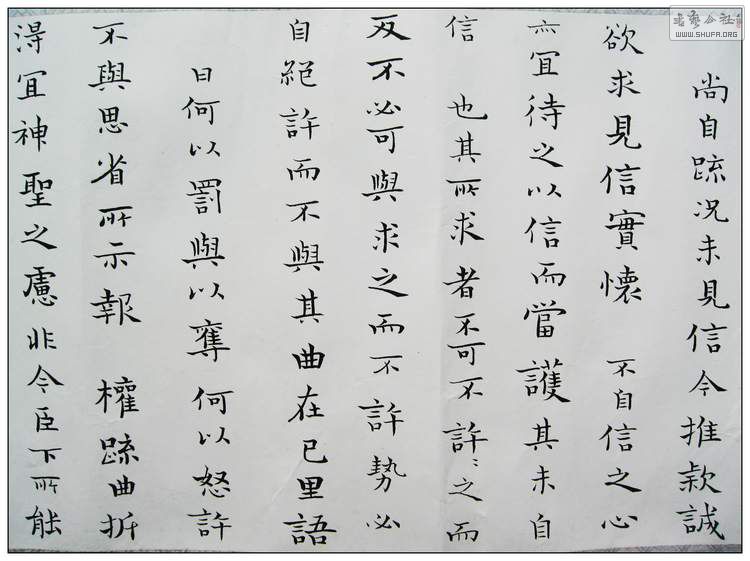 尚自疏况未見信今推款誠
欲求見信實懷不自信之心
亦宜待之以信而當護其未自
信也其所求者不可不許〻之而
反不必可與求之而不許勢必
自絕許而不與其曲在己里語
曰何以罰與以奪何以怒許
不與思省所示報權疏曲折
得宜神聖之慮非今臣下所能
WWW.SHUFA.ORG